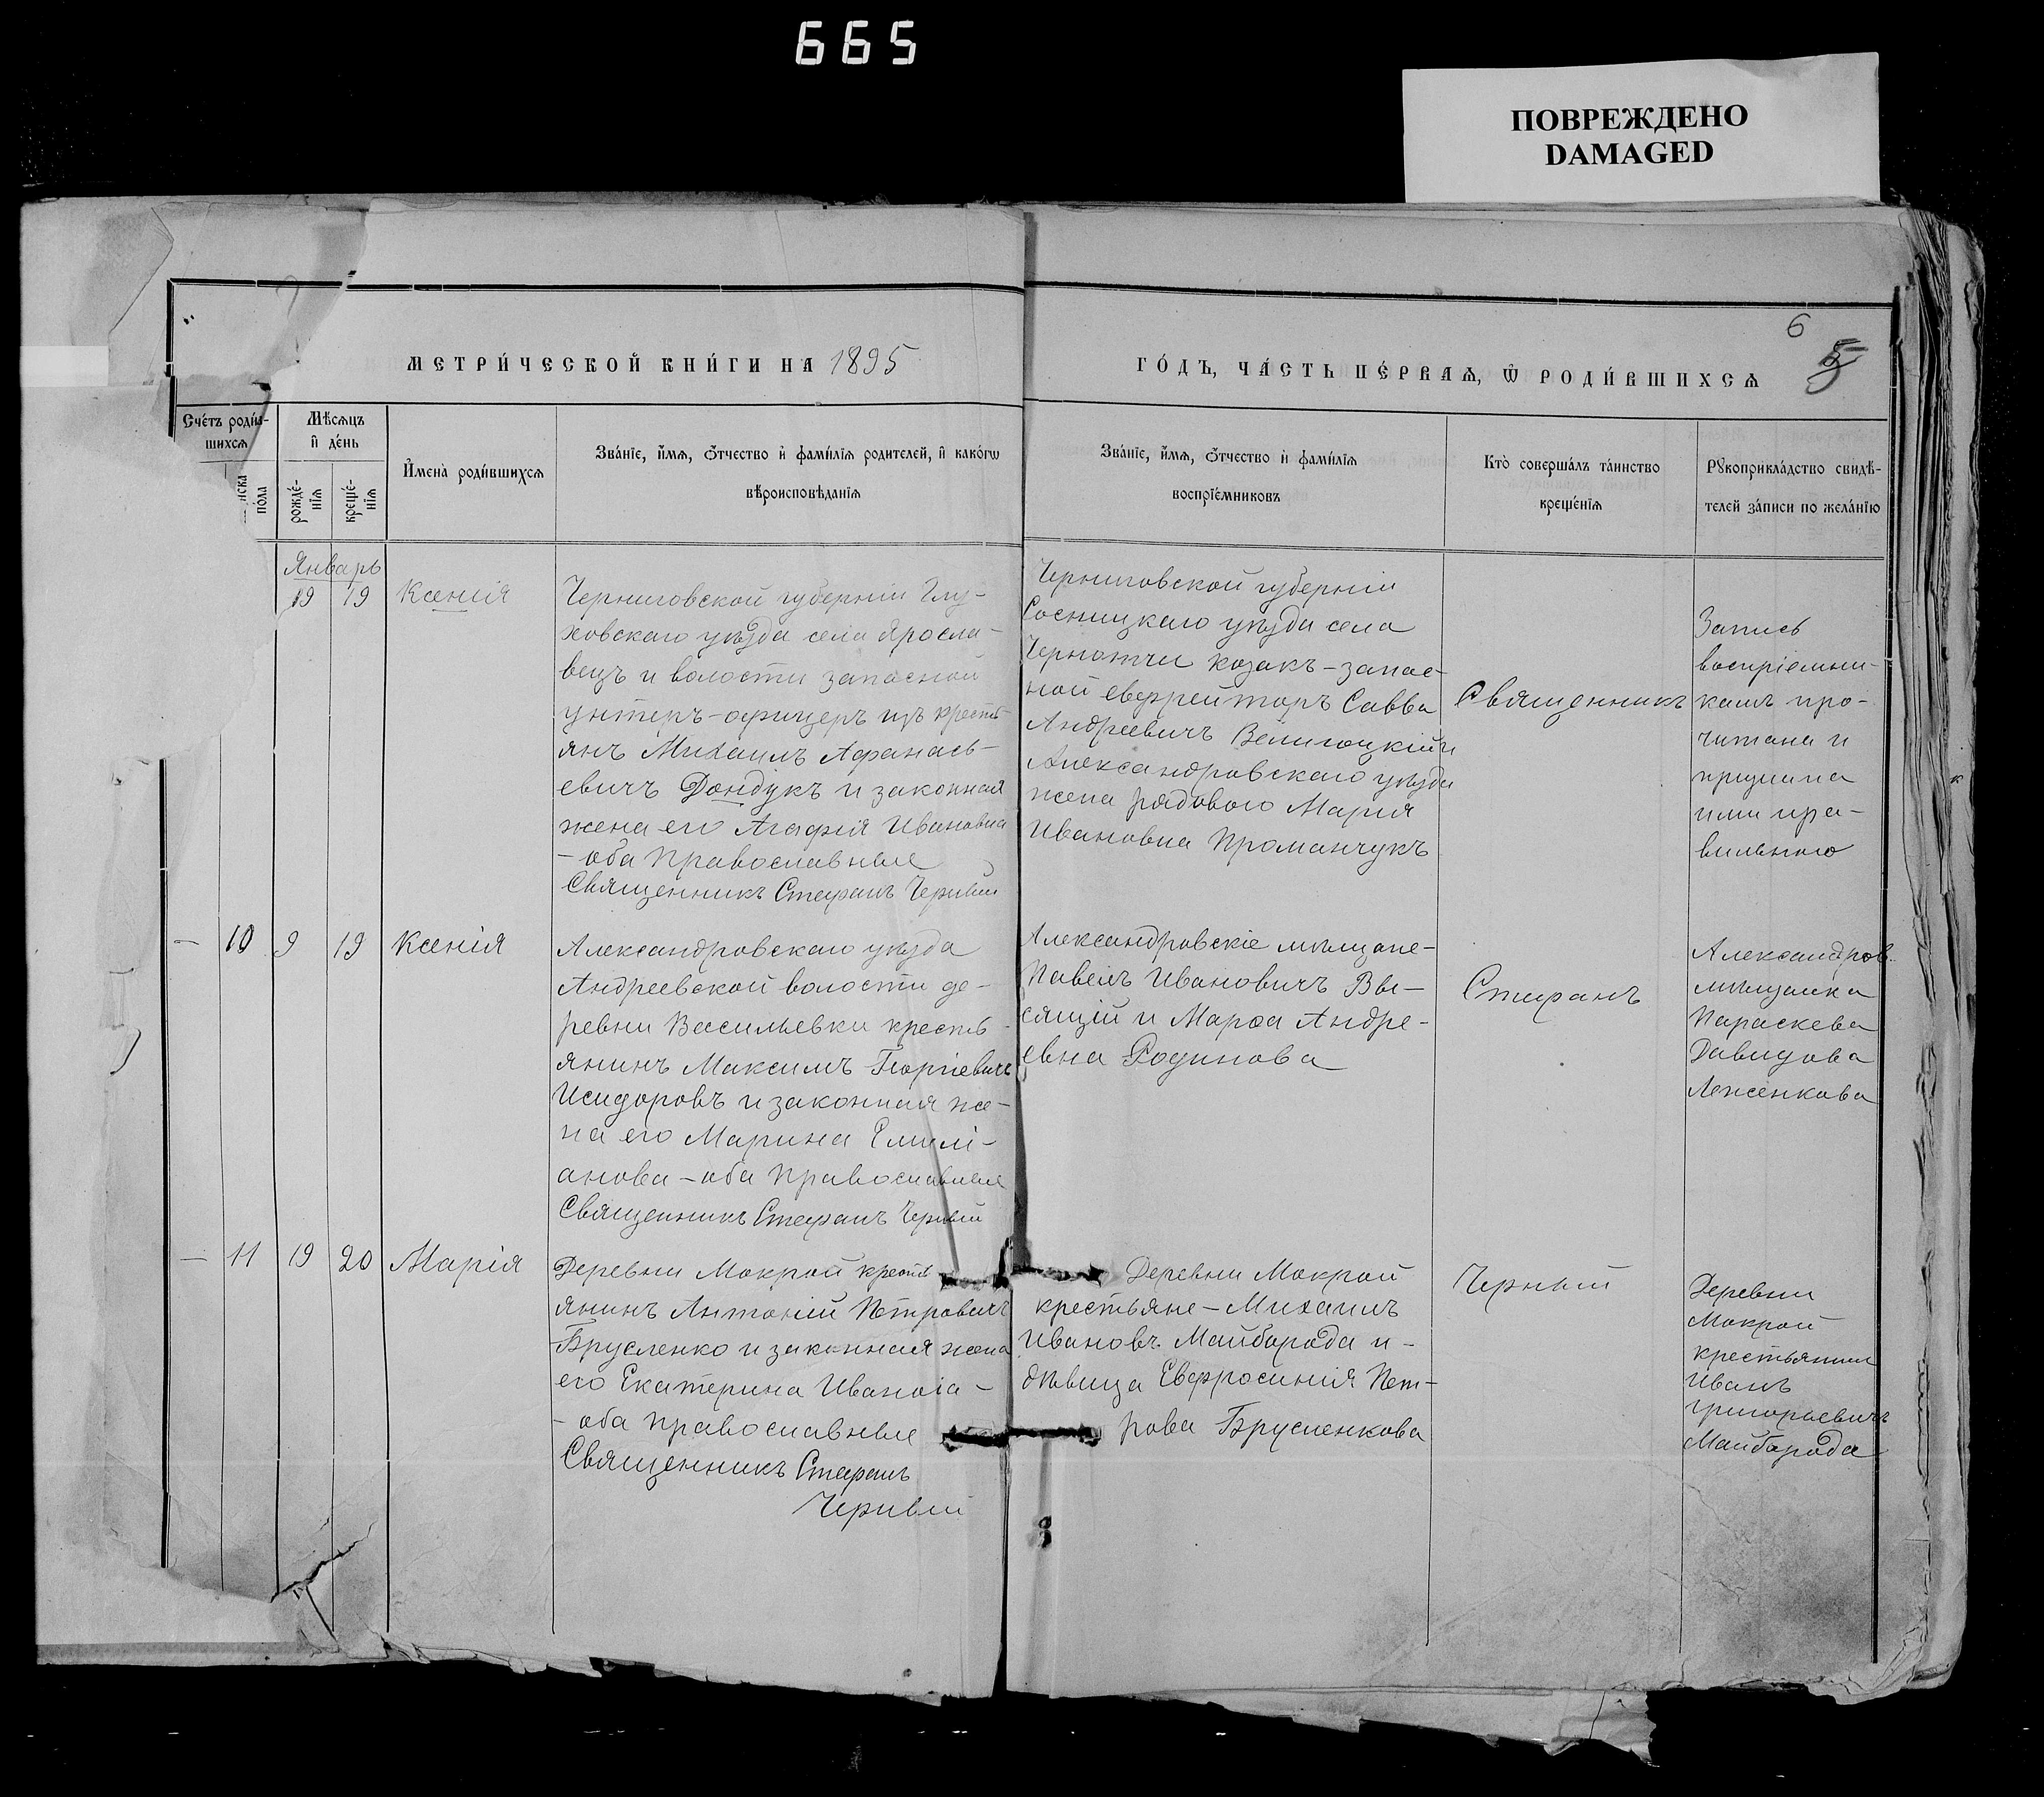 665
ПОВРЕЖДЕНО
DAMAGED
6
5
МЕТРИ́ЧЕСКОЙ КНИ́ГИ НА 1895
ГО́ДЪ, ЧА́СТЬ ПЕ́РВАѦ, Ѡ҆ РОДИ́ВШИХСѦ
Сче́тъ роди́в-
шихсѧ
нска
по́ла
Мѣ́сѧцъ
и҆ де́нь
рожде́-
нїѧ
креще́-
нїѧ
И҆мена̀ роди́вшихсѧ
Зва́нїе, и҆́мѧ, ѻ҆́тчество и҆ фами́лїѧ родителей, и҆ како́гѡ
вѣроисповѣ́данїѧ
Зва́нїе, и҆́мѧ, ѻ҆́тчество и҆ фами́лїѧ
воспрїе́мниковъ
Кто̀ соверша́лъ та́инство
креще́нїѧ
Рꙋкоприкла́дство свидѣ́-
телей за́писи по жела́нїю
Январь
19 19 Ксенія
Черниговской губерніи Глу-
ховскаго уѣзда села Яросла-
вецъ и волости запасной
унтеръ-офицеръ изъ кресть-
янъ Михаилъ Афанась-
евичъ Дондукъ и законная
жена его Агафія Ивановна
- оба православные
Священникъ Стефанъ Черный
Черниговской губерніи
Сосницкаго уѣзда села
Чернотчи козакъ-запас-
ной ефрейторъ Савва
Андреевичъ Велигоцкій и
Александровскаго уѣзда
жена рядового Марія
Ивановна Проманчукъ
Священникъ
Запись
воспріемни-
камъ про-
читана и
признана
ими пра-
вильною
— 10 9 19 Ксенія
Александровскаго уѣзда
Андреевской волости де-
ревни Васильевки кресть-
янинъ Максимъ Георгіевичъ
Исидоровъ и законная же-
на его Марина Емилі-
анова - оба православные
Священникъ Стефанъ Черный
Александровскіе мѣщане-
Павелъ Ивановичъ Вы-
сящій и Марѳа Андре-
евна Родинова
Стефанъ
Александров.
мѣщанка
Параскева
Давидова
Леженкова
— 11 19 20 Марія
Деревни Мокрой кресть
янинъ Антоній Петровичъ
Брусленко и законная жена
его Екатерина Иванова -
- оба православные
Священникъ Стефанъ
Черный
Деревни Мокрой
крестьяне - Михаилъ
Ивановъ Майборода и -
дѣвица Евфросинія Пет-
рова Брусленкова
Черный
Деревни
Мокрой
крестьянин
Иванъ
Григорьевичъ
Майборода